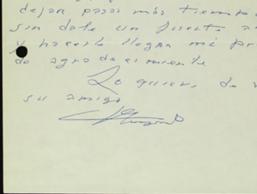 dejar pasar más tiempo
sin darte un fuerte a
y hacerte llegar mi pr
do agradecimiento
Lo quiere, de v
su amigo